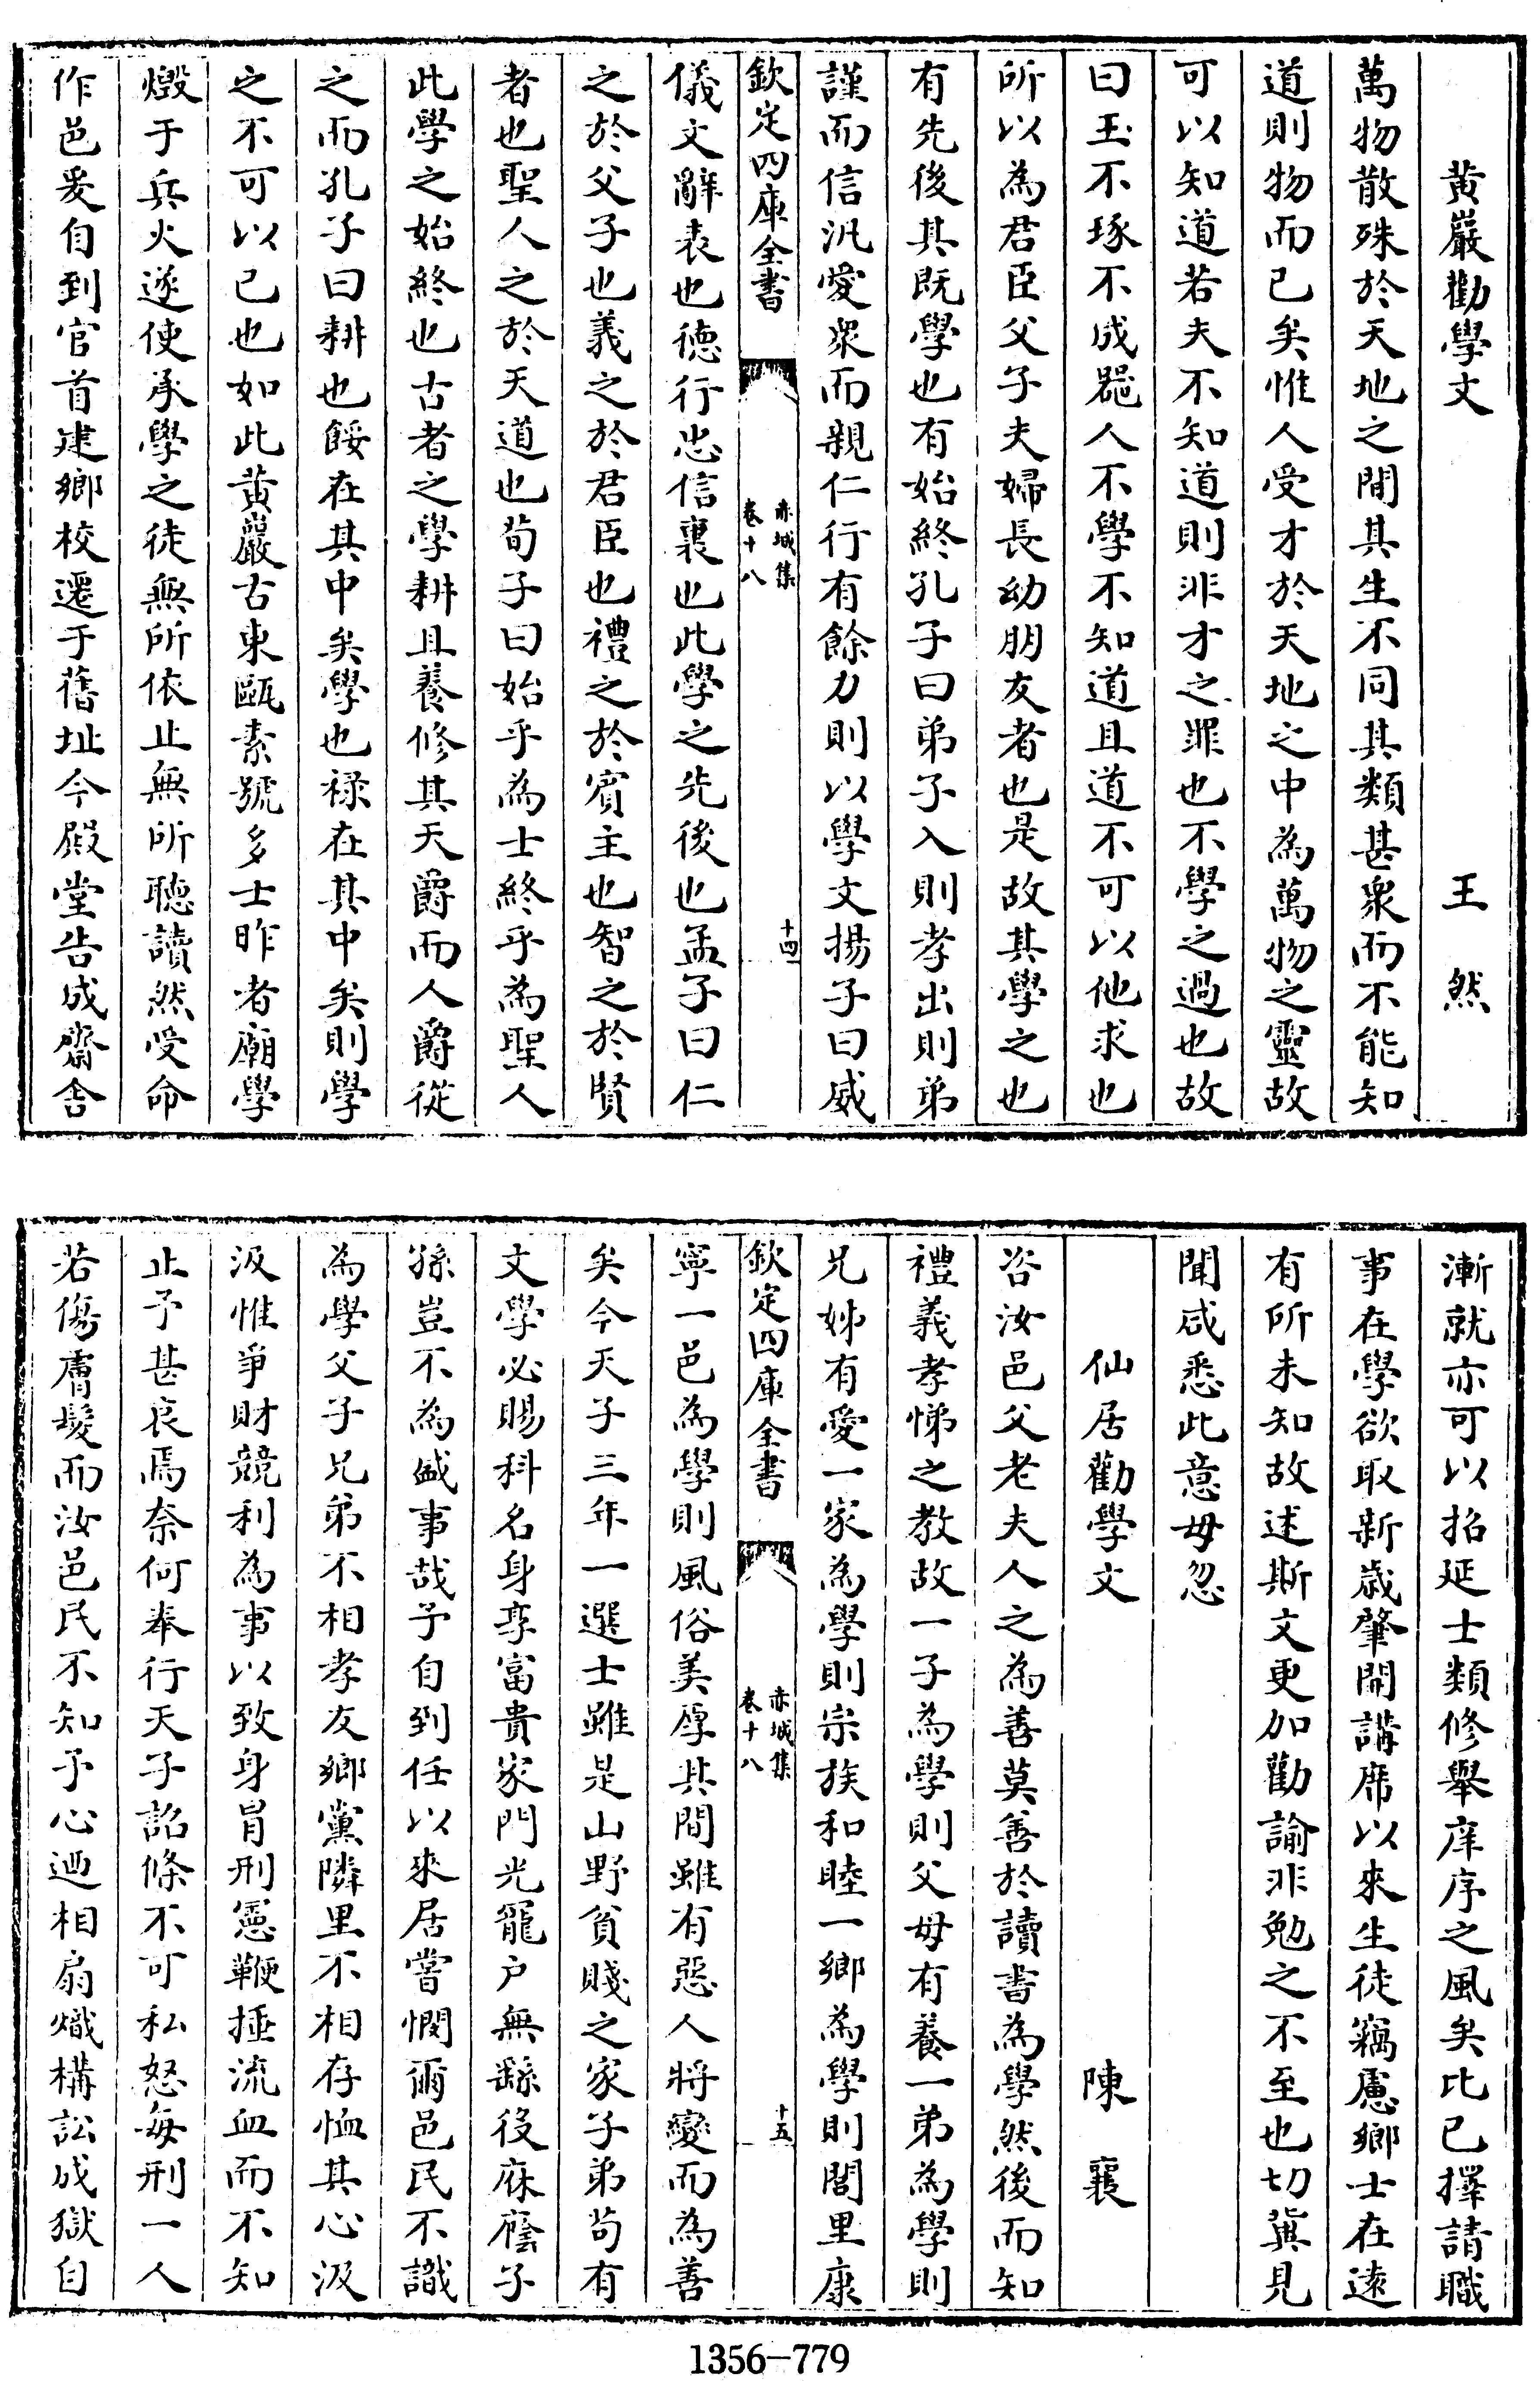 黄巖勸學文　王然
萬物散殊於天地之間其生不同其類甚衆而不能知
道則物而已矣惟人受才於天地之中為萬物之靈故
可以知道若夫不知道則非才之罪也不學之過也故
曰玉不琢不成器人不學不知道且道不可以他求也
所以為君臣父子夫婦長幼朋友者也是故其學之也
有先後其既學也有始終孔子曰弟子入則孝出則弟
謹而信汎愛衆而親仁行有餘力則以學文揚子曰威
欽定四庫全書　赤城集　卷十八　十四
儀文辭表也德行忠信裏也此學之先後也孟子曰仁
之於父子也義之於君臣也禮之於賓主也智之於賢
者也聖人之於天道也荀子曰始乎為士終乎為聖人
此學之始終也古者之學耕且養修其天爵而人爵從
之而孔子曰耕也餒在其中矣學也禄在其中矣則學
之不可以已也如此黄巖古東甌素號多士昨者廟學
燬于兵火遂使承學之徒無所依止無所聽讀然受命
作邑爰自到官首建鄉校遷于舊址今殿堂告成齋舍
漸就亦可以招延士類修舉庠序之風矣比已擇請職
事在學欲取新歲肇開講席以來生徒竊慮鄉士在遠
有所未知故述斯文更加勸諭非勉之不至也切冀見
聞咸悉此意毋忽
仙居勸學文　陳襄
咨汝邑父老夫人之為善莫善於讀書為學然後而知
禮義孝悌之教故一子為學則父母有養一弟為學則
兄姊有愛一家為學則宗族和睦一鄉為學則閭里康
欽定四庫全書　赤城集　卷十八　十五
寧一邑為學則風俗美厚其間雖有惡人將變而為善
矣今天子三年一選士雖是山野貧賤之家子弟茍有
文學必賜科名身享富貴家門光寵户無繇役庥廕子
孫豈不為盛事哉予自到任以來居嘗憫爾邑民不識
為學父子兄弟不相孝友鄉黨隣里不相存恤其心汲
汲惟爭財競利為事以致身冒刑憲鞭捶流血而不知
止予甚哀焉奈何奉行天子詔條不可私怒每刑一人
若傷膚髮而汝邑民不知予心迺相扇熾構訟成獄自
1356—779